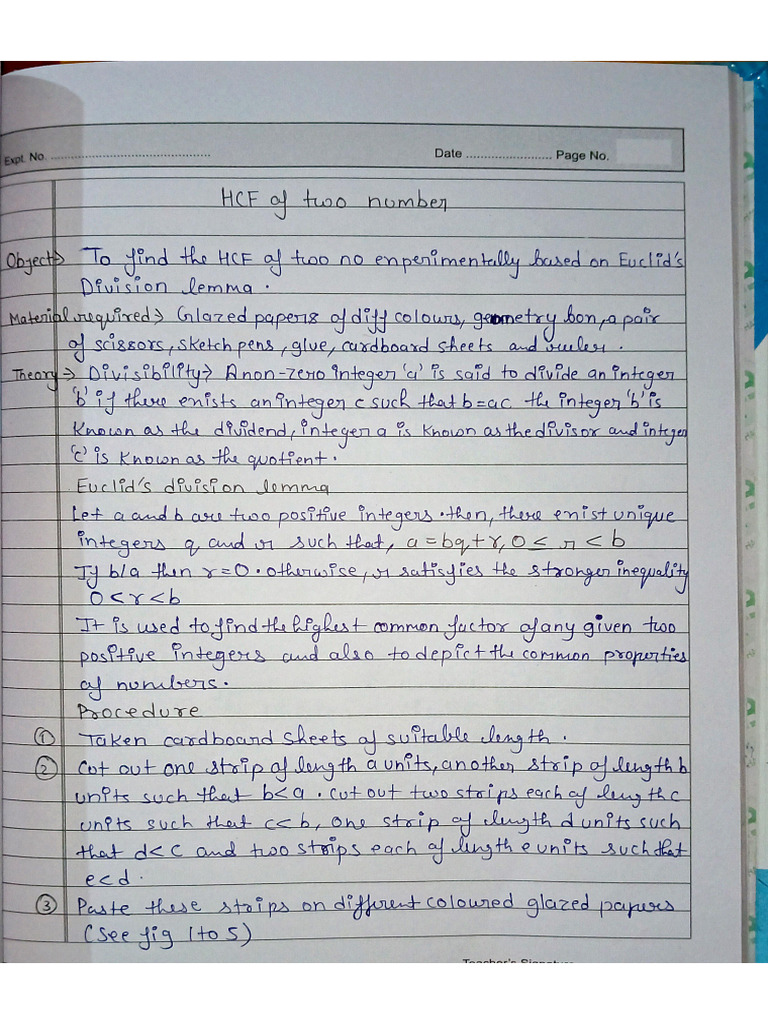 Expt. No. ............................................
Date ........................ Page No.
HCF of two number
Object→ To find the HCF of two no enperimentally based on Euclid's
Division lemma.
Material required→ Glazed papers of diff colours, geometry bon, a pair
of scissors, sketch pens, glue, cardboard sheets and ruler.
Theory→ Divisibility→ A non-zero integer 'a' is said to divide an integer
'b' if there enists an integer c such that b=ac the integer 'b' is
known as the dividend, integer a is known as the divisor and integer
'c' is known as the quotient.
Euclid's division lemma
Let a and b are two positive integers. then, there enist unique
integers q and r such that, a = bq + r, 0 ≤ r < b
If b/a then r=0. otherwise, r satisfies the stronger inequality
0<r<b
It is used to find the highest common factor of any given two
positive integers and also to depict the common properties
of numbers.
Procedure
① Taken cardboard sheets of suitable length.
② Cut out one strip of length a units, another strip of length b
units such that b<a. cut out two strips each of length c
units such that c<b, one strip of length d units such
that d<c and two strips each of length e units such that
e<d.
③ Paste these strips on different coloured glazed papers
(See fig 1 to 5)
Teacher's Signature